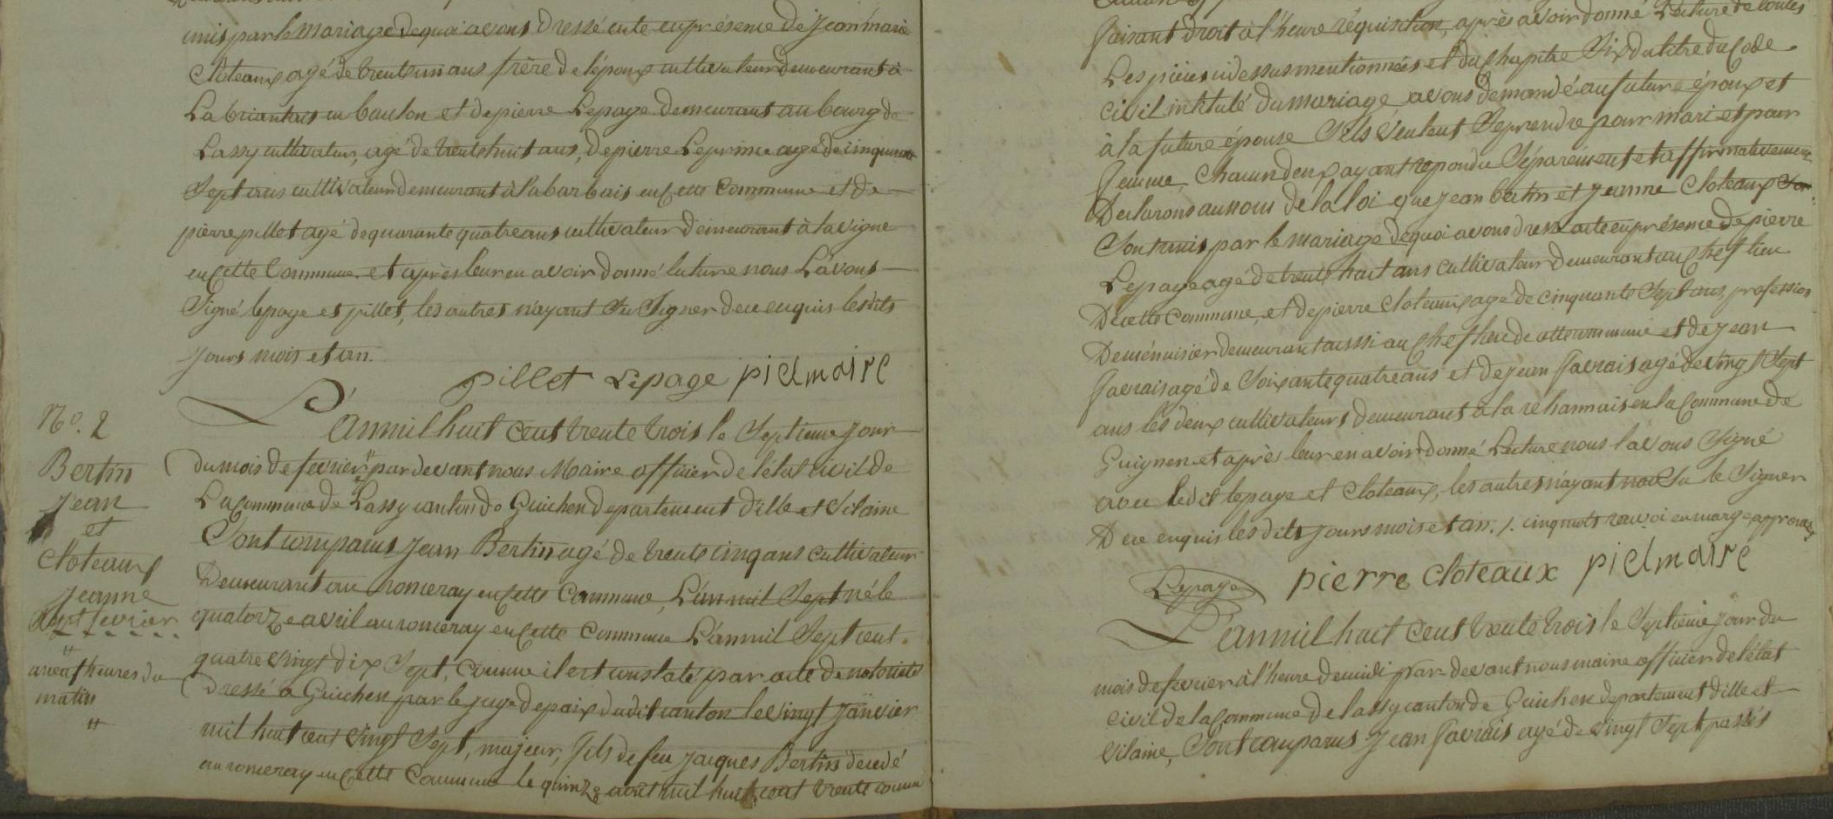 unis par le mariage de quoi avons dressé acte en présence de jean marie
Cloteaux agé de trente un ans frère de lépoux cultivateur demeurant à
La briantais en baulon et de pierre Lepage demeurant au bourg de
Lassy cultivateur, agé de trente huit ans, de pierre Leprince agé de cinquante
Sept ans cultivateur demeurant à la barbais en Cette Commune et de
pierre pillet agé de quarante quatre ans cultivateur demeurant à la vigne
en Cette Commune. et après leur en avoir donné lecture nous L'avons
Signé lepage et pillet, les autres n'ayant Su Signer de ce enquis lesdits
jours mois et an.
pillet Lepage pielmaire
N°. 2
Bertin
jean
et
Cloteaux
jeanne
Sept fevrier
a neuf heures du
matin
L'an mil huit Cent trente trois le Septieme jour
du mois de fevrier par devant nous Maire officier de l'état civil de
La Commune de Lassy canton de Guichen departement d'ille et Vilaine
Sont comparus jean Bertin agé de trente cinq ans cultivateur
Demeurant au ronceray en Cette Commune, L'an mil Sept né le
quatorze avril au ronceray en Cette Commune L'an mil Sept cent
quatre vingt dix Sept, Comme il est constaté par acte de notoriété
Dressé a Guichen par le juge de paix dudit canton le vingt janvier
mil huit cent vingt Sept, majeur, fils de feu jacques Bertin décédé
au ronceray en Cette Commune le quinze août mil huit cent trente comme
faisant droit à l'heure réquisition, après avoir donné Lecture de toutes
Les pièces ci dessus mentionnées et du Chapitre Six du titre du Code
Civil intitulé du mariage avons demandé au future époux et
à la future épouse S'ils veulent Se prendre pour mari et pour
femme, Chacun deux ayant répondu Séparément et affirmativement
Declarons au nom de la loi que jean bertin et jeanne Cloteaux
Sont unis par le mariage de quoi avons dressé acte en présence de pierre
Lepage agé de trente huit ans cultivateur demeurant au Chef lieu
De cette Commune, et de pierre Cloteaux agé de cinquante Sept ans, profession
De menuisier demeurant aussi au Chef lieu de cette commune et de jean
Gavrais agé de Soixante quatre ans et de jean Gavrais agé de vingt Sept
ans les deux cultivateurs demeurant à la rehannais en la Commune de
Guignen et après leur en avoir donné Lecture nous l'avons Signé
avec ledit lepage et Cloteaux, les autres n'ayant Su le Signer
De ce enquis lesdits jours mois et an. /. cinq mots renvoi en marge approuvés
Lepage pierre cloteaux pielmaire
L'an mil huit Cent trente trois le Septieme jour du
mois de fevrier à l'heure de midi par devant nous maire officier de l'état
Civil de la Commune de lassy canton de Guichen departement dille et
Vilaine, Sont comparus jean Gavrais agé de vingt Sept passés